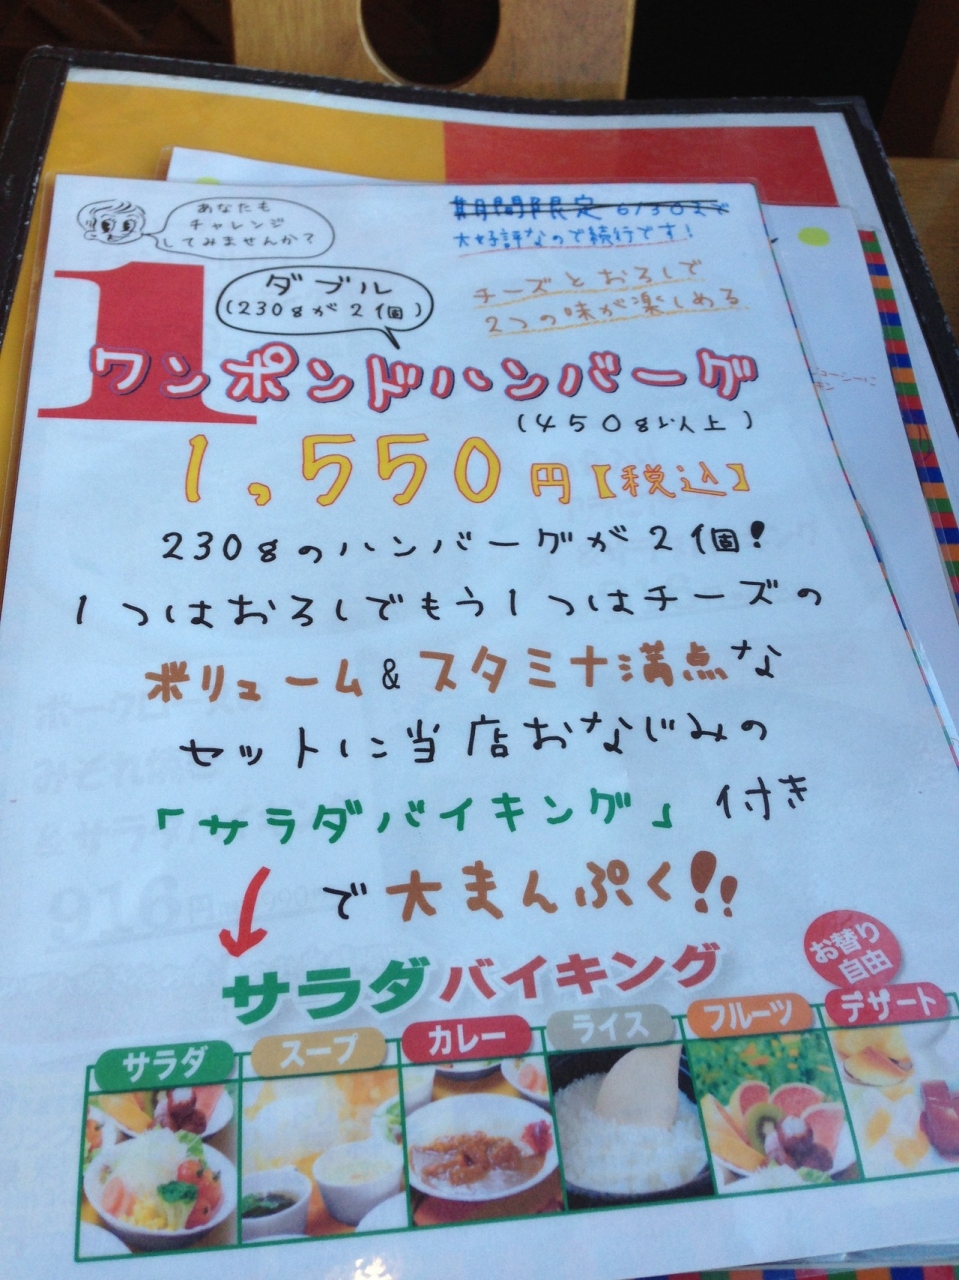 あなたも
チャレンジ
してみませんか?
期間限定 6/30まで
大好評なので続行です!
ダブル
(230gが2個)
チーズとおろしで
2つの味が楽しめる
1
ワンポンドハンバーグ
(450g以上)
1,550円【税込】
230gのハンバーグが2個!
1つはおろしでもう1つはチーズの
ボリューム&スタミナ満点な
セットに当店おなじみの
「サラダバイキング」付き
で大まんぷく!!
サラダバイキング
お替り
自由
サラダ
スープ
カレー
ライス
フルーツ
デザート
916円